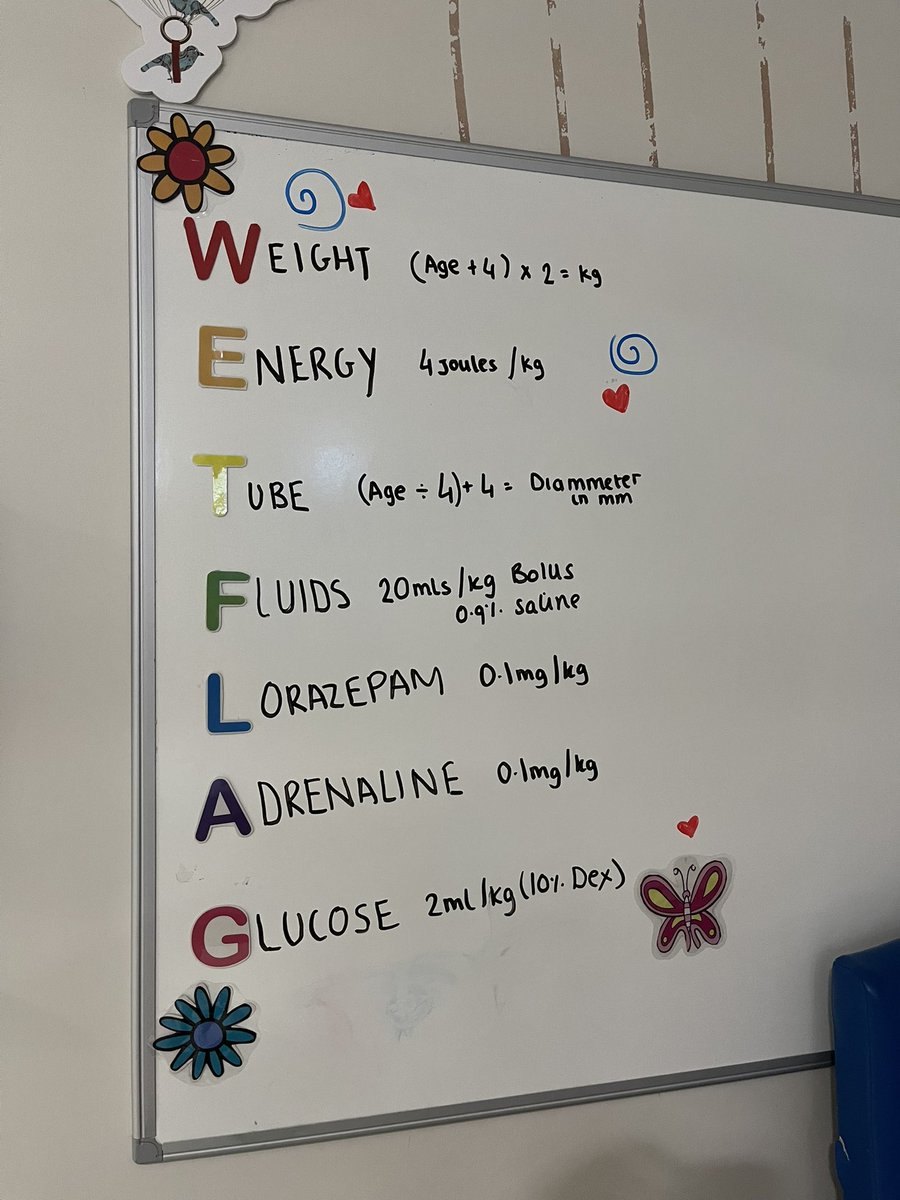 WEIGHT (Age + 4) x 2 = kg
ENERGY 4 Joules /kg
TUBE (Age ÷ 4) + 4 = Diammeter
in mm
FLUIDS 20mls/kg Bolus
0.9% saline
LORAZEPAM 0.1mg/kg
ADRENALINE 0.1mg/kg
GLUCOSE 2ml/kg (10% Dex)